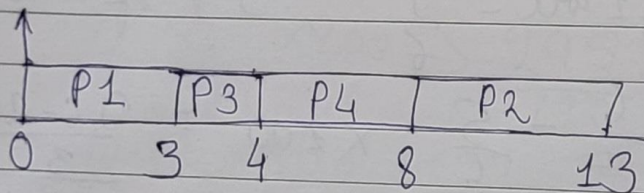 P1 P3 P4 P2
0 3 4 8 13